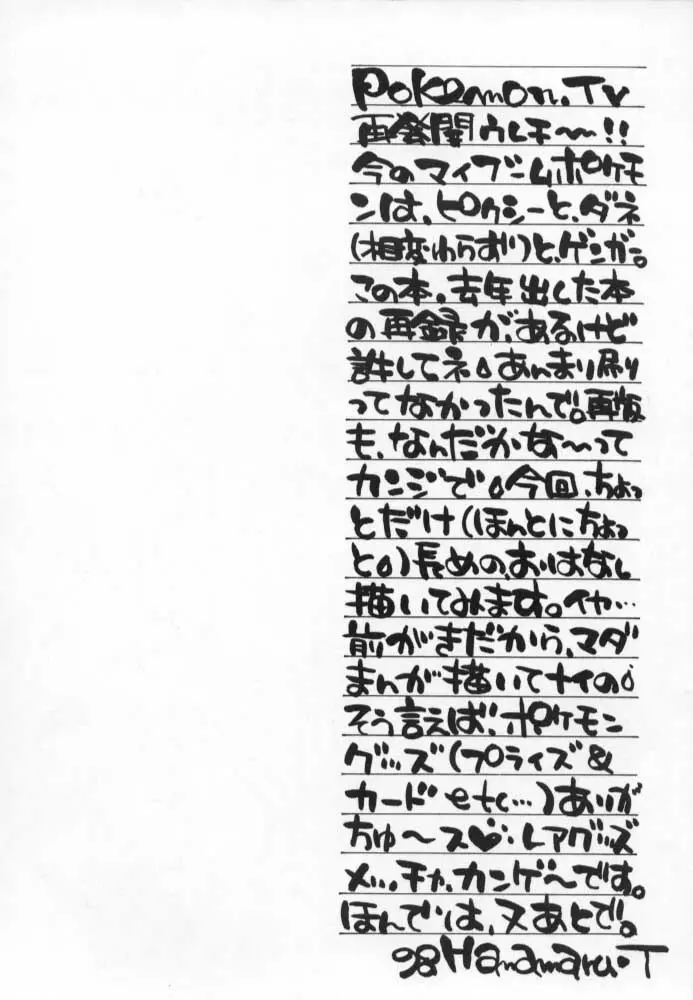 Pokemon.TV
再発開ウレチ〜〜!!
今のマイブームポケモ
ンは、ピクシーと、ダネ
(相変わらず)と、ゲンガー。
この本。去年出した本
の再録が、あるけど
許してネ。あんまり刷り
ってなかったんで。再版
も、なんだかな〜って
カンジで。今回、ちょっ
とだけ(ほんとにちょっ
と。)長めの、おはなし
描いてみます。イヤ…
前がきだから、マダ
まんが描いてナイの。
そう言えば、ポケモン
グッズ(プライズ&
カードetc…)ありが
ちゅ〜ス♥:レアグッズ
メッ、チャ、カンゲ〜です。
ほんでは、又あとで。
'98 Hanamaru・T